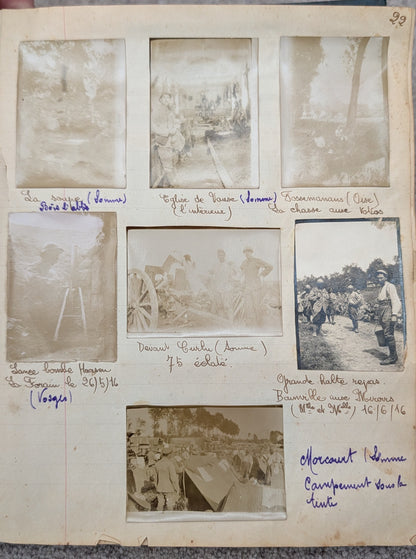 22
La soupe (Somme)
Bois
Eglise de Vaux (Somme)
(l'interieur)
Fossemanant (Oise)
La chasse aux
Lance bombe
La Forain le 26/5/16
(Vosges)
Devant Curlu (Somme)
75 éclaté
Grande halte repas
aux Miroirs
(Mlle et Mlle) 16/6/16
Morcourt (Somme
Campement sous la
tente